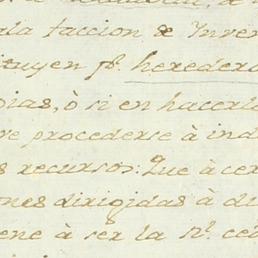 ala faccion de Inven
tituyen pr. heredero
cias, ò si en hacerla
re procederse à ind
s recursos: Que à cer
nes dirigidas à di
ene à ser la Sr. ced